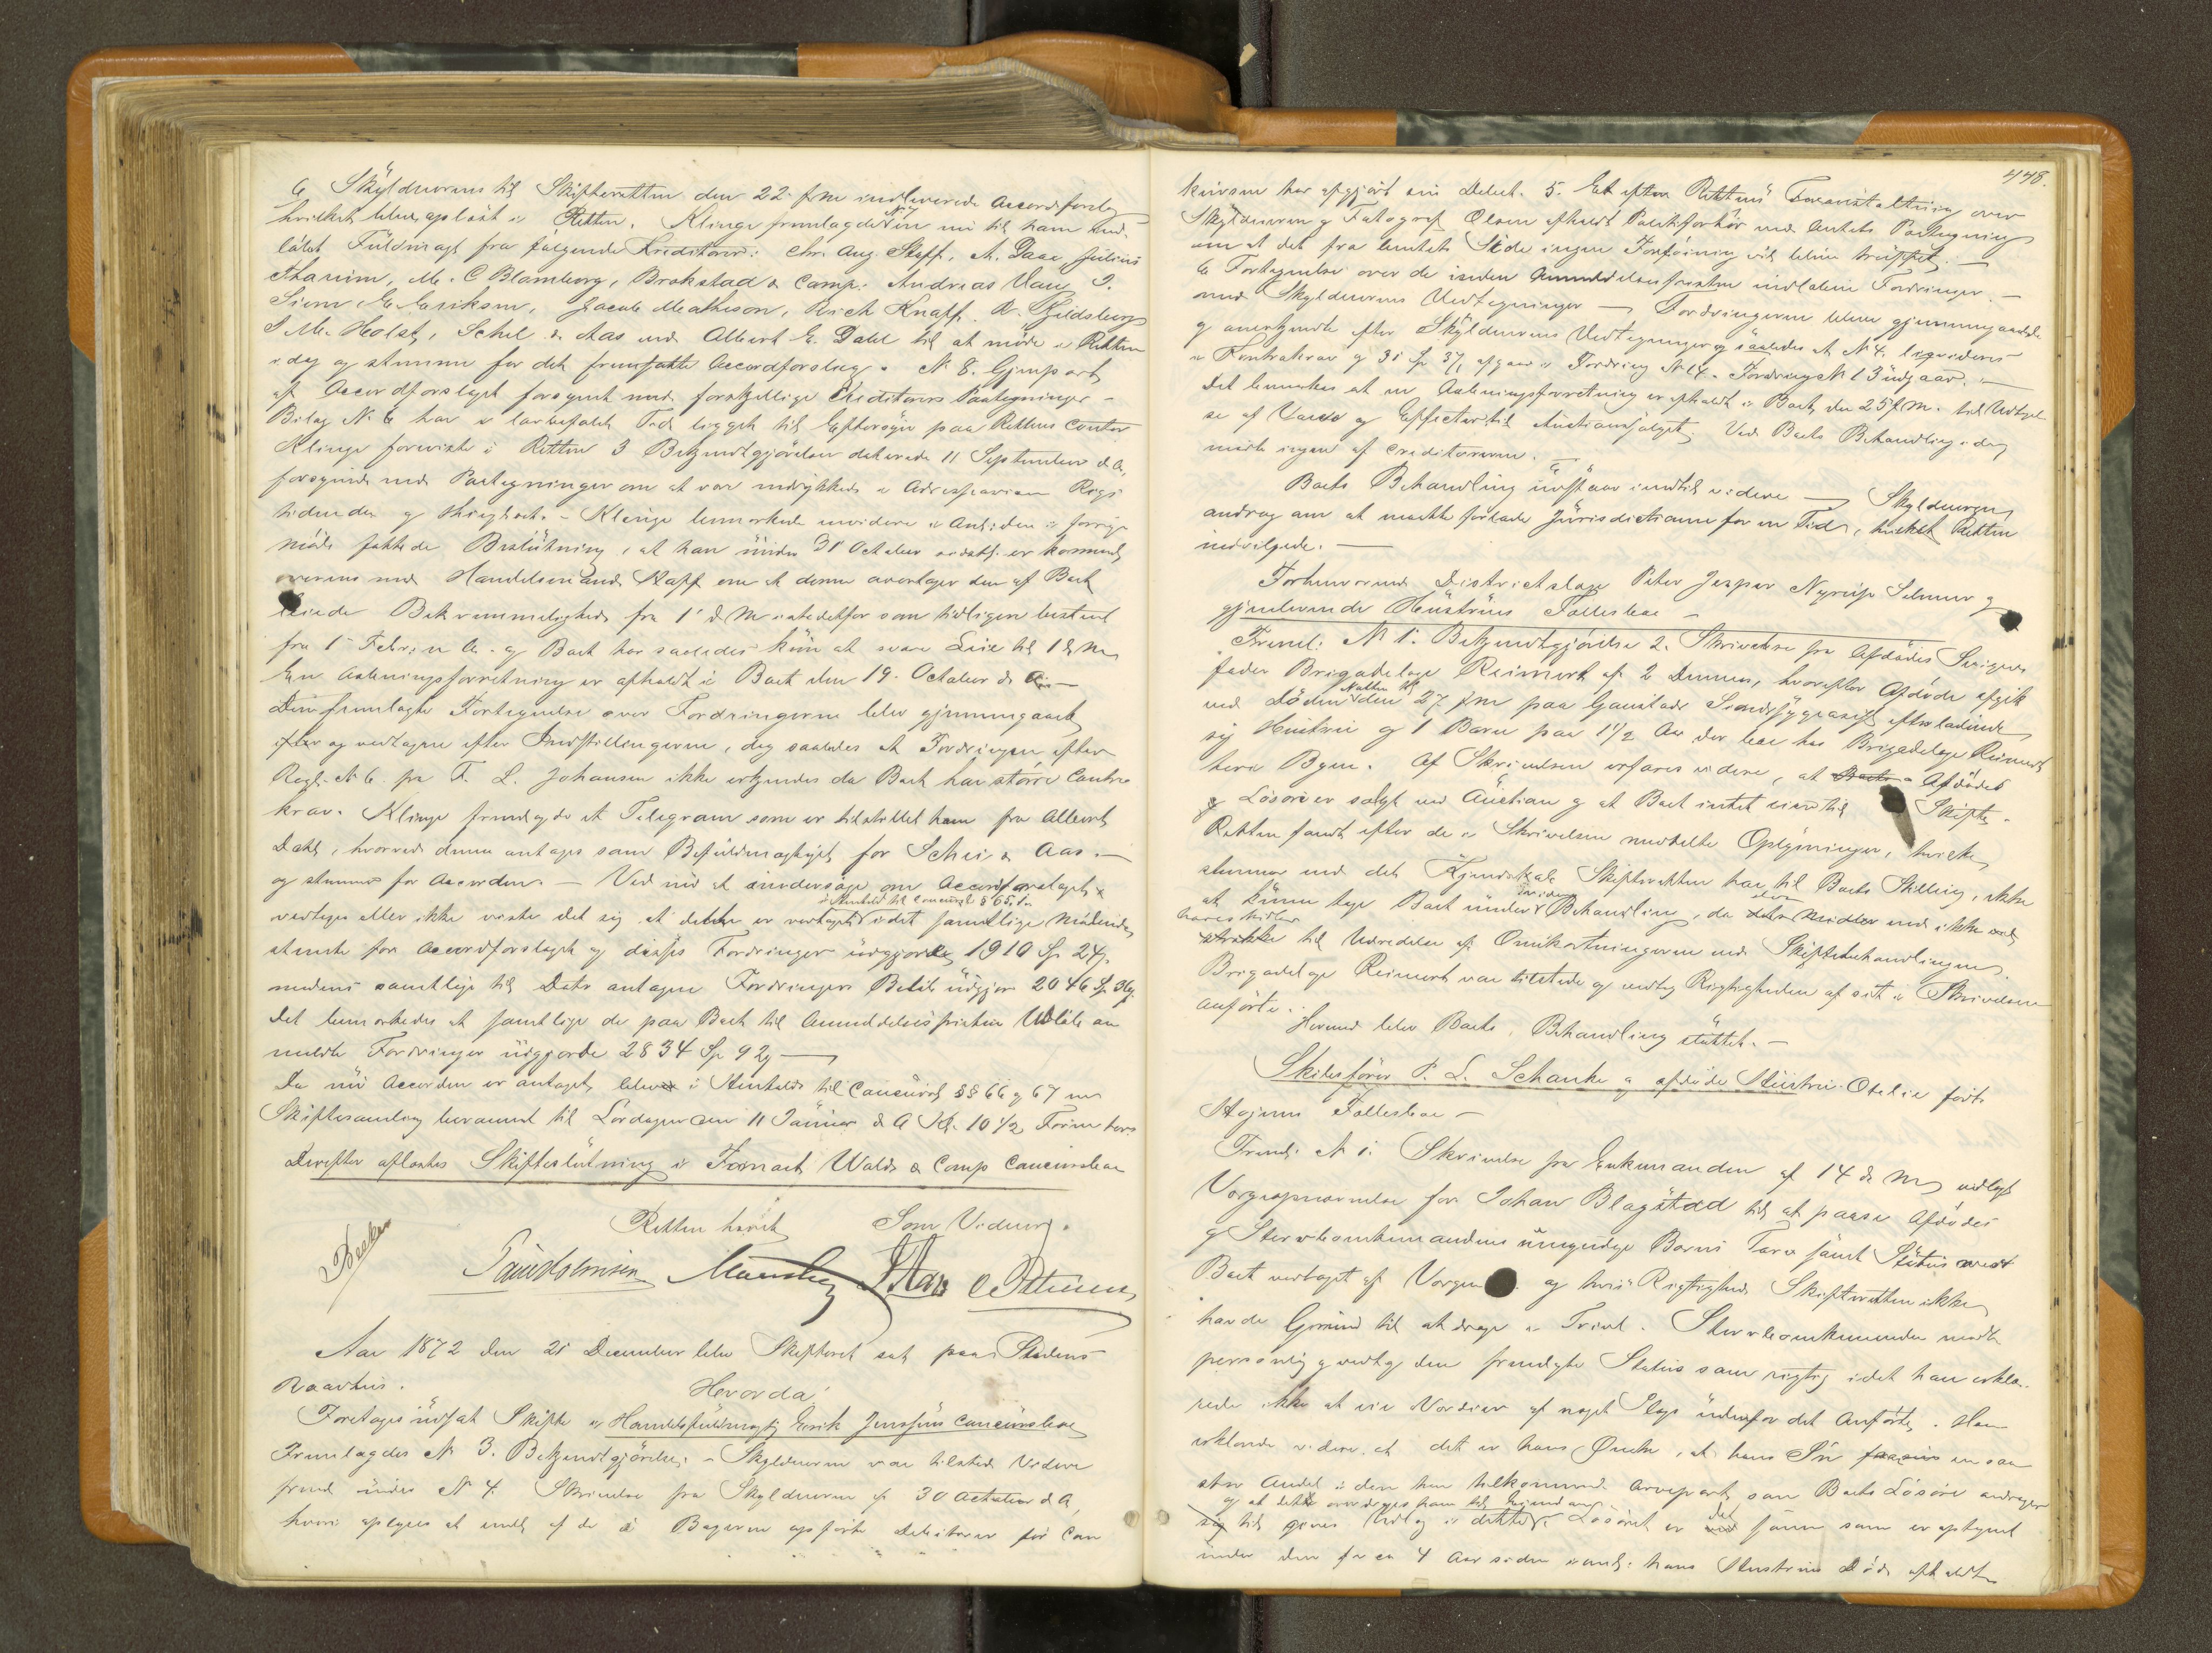 6 Skyldnerens til Skifteretten den 22 f. M. indleverede Accordforslag
hvilket blev oplæst i Retten. Klinge fremlagde N. 7 en nu til ham ud-
stædt Fuldmagt fra følgende Kreditorer: Chr. Aug. Stapf, A. Daae, Julius
Thannum, M. C Blomberg, Brakstad & Comp. Andreas Vang, I.
Siem, E. Eriksen, Jacob Matheson, Erich Knaff, R. Gjedsberg
S. M. Holst, Schel & Aas ved Albert E. Dahl til at møde i Retten
i dag og stemme for det fremsatte Accordforslag. N. 8. Gjenpart
af Accordforslaget forsynet med forskjellige Kreditorers Paategninger -
Bilag N. 6 har i lovbefalet Tid ligget til Eftersyn paa Rettens Contor
Klinge foreviste i Retten 3 Bekjendtgjørelser daterede 11 September d. A.,
forsynede med Paategninger om at være indrykkede i Adresseavisen Rigs-
tidenden og - Klinge bemærkede endvidere i Anledn. i forrige
Møde fattede Beslutning, at han under 31 October er kommet
overens med Handelsmand Stapf om at denne overtager den af Boet
leiede Bekvemmelighed fra 1' d. M. istedetfor som tidligere bestemt
fra 1 Febr: n. A. og Boet har saaledes kun at svare Leie til 1 d. M.
En Auctionsforretning er afholdt i Boet den 19. October d. A. —
Den fremlagte Fortegnelse over Fordringerne blev gjennemgaaet
og vedtagne efter Indstillingerne, dog saaledes at Fordringen efter
Regl. N. 6. fra F. L. Johansen ikke erkjendes da Boet har større Contra-
krav. Klinge fremlagde et Telegram som er tilstillet ham fra Albert
Dahl, hvorved denne antages som Befuldmægtiget for Schei & Aas. —
og stemmer for Accorden. — Ved nu at undersøge om Accordforslaget er
i Henhold til Concursl. § 65. 1.
vedtaget eller ikke viste det sig at dette er vedtaget idet samtlige Mødende
stemte for Accordforslaget og disses Fordringer udgjorde 1910 Sp 24 s.
medens samtlige til Dato antagne Fordringers Beløb udgjør 2046 Sp. 36 s.
Det bemærkedes at samtlige de paa Boet til Anmeldelsesfristens Udløb an-
meldte Fordringer udgjorde 2834 Sp 92 s —
Da nu Accorden er antaget, blev i Henhold til Concursl. §§ 66 og 67 en
Skiftesamling berammet til Lørdagen den 11 Januar d. A Kl. 10 1/2 Form. hvor
Derefter aflastes Skifteslutning i Comp Concursboe
Retten hævet Som Vidner.
Aar 1872 den 21 December blev Skifteret sat paa Stadens
Raadhus.
Hvorda!
Foretoges udsat Skifte i Handelsfuldmægtig Erik Jenssens Concursboe
Fremlagdes N 3. Bekjendtgjørelse. - Skyldneren var tilstede. Videre
fremd. under N 4. Skrivelse fra Skyldneren af 30 October d. A,
hvori oplyses at endel af de i Bøgerne opførte Debitorer før Con-
448.
kursen har afgjort sin Debet. 5. Et efter Rettens Foranstaltning over
Skyldneren og Fotograf Olsen afholdt Politiforhør med Amtets Paategning
om at det fra Amtets Side ingen Forføining vil blive truffet. —
6 Fortegnelse over de inden Anmeldelsesfristen indløbne Fordringer. —
med Skyldnerens Vedtegninger — Fordringerne bleve gjennemgaaede
og anerkjendte efter Skyldnerens Vedtegninger og saaledes at N 4. liqvideres
i Kontrakrav og 31 Sp 37 s afgaar i Fordring N 14. Fordring N 13 udgaar. —
Det bemærkes at en Auctionsforretning er afholdt i Boet den 25 f. M. til Udbydel-
se af Varer og Effecter til Auctionssalget. Ved Boets Behandling i dag
mødte ingen af Creditorerne. —
Boets Behandling udstaar indtil videre — Skyldneren
androg om at maatte forlade Jurisdictionen for en Tid, hvilket Retten
indvilgede. —
Forhenværende Districtslæge Peter Jesper Nyrup Selmer og
gjenlevende Hustrues Fællesboe —
Freml: N 1. Bekjendtgjørelse 2. Skrivelse fra Afdødes Sviger-
fader Brigadelæge Reimert af 2 Dennes, hvorefter Afdøde afgik
ved Døden Natten til den 27 f. M. paa Gaustads Sindssygeasyl efterladende
sig Hustru og 1 Barn paa 1 1/2 Aar der bor hos Brigadelæge Reimert
her i Byen. Af Skrivelsen erfares videre, at Afdødes
Løsøre er solgt ved Auction og at Boet intet eier til Skifte.
Retten fandt efter de i Skrivelsen meddelte Oplysninger, hvilke
stemmer med det Kjendskab Skifteretten har til Boets Stilling, ikke
at kunne tage Boet under videre Behandling, da dets Midler end ikke
haves Midler
til Udredelse af Omkostningerne ved Skiftebehandlingen.
Brigadelæge Reimert var tilstede og vedtog Rigtigheden af sit i Skrivelsen
anførte.
Hermed blev Boets Behandling sluttet. —
Skibsfører P. L. Schanke og afdøde Hustru Otelie født
Hojems Fællesboe —
Freml. N 1. Skrivelse fra Enkemanden af 14 d. M. vedlagt
Værgeopnævnelse for Johan Blagstad til at paase Afdødes
og Stervboenkemandens umyndige Barns Tarv samt Status over
Boet vedtaget af Værgen og hvis Rigtighed Skifteretten ikke
havde Grund til at drage i Tvivl. Stervboenkemanden mødte
personlig og vedtog den fremlagte Status som rigtig idet han erklæ-
rede ikke at eie Værdier af noget Slags udenfor det Anførte. Han
erklærede videre at det er hans Ønske, at hans Søn en saa
stor Andel i den ham tilkommende Arvepart, som Boets Løsøre andrager
og at dette overdrages ham til Eiendom
til gives Udlæg i dette. Løsøret er det samme som er optegnet
under den for ca 4 Aar siden i Anl. hans Hustrues Død afholdte